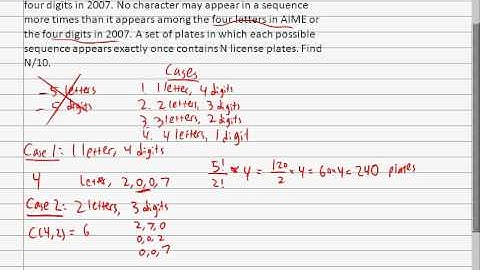 four digits in 2007. No character may appear in a sequence
more times than it appears among the four letters in AIME or
the four digits in 2007. A set of plates in which each possible
sequence appears exactly once contains N license plates. Find
N/10.
Cases
- 5 letters
- 5 digits
1. 1 letter, 4 digits
2. 2 letters, 3 digits
3. 3 letters, 2 digits
4. 4 letters, 1 digit
Case 1: 1 letter, 4 digits
4 letter, 2, 0, 0, 7
5!/2! * 4 = 120/2 * 4 = 60 * 4 = 240 plates
Case 2: 2 letters, 3 digits
C(4,2) = 6
2, 7, 0
0, 0, 2
0, 0, 7